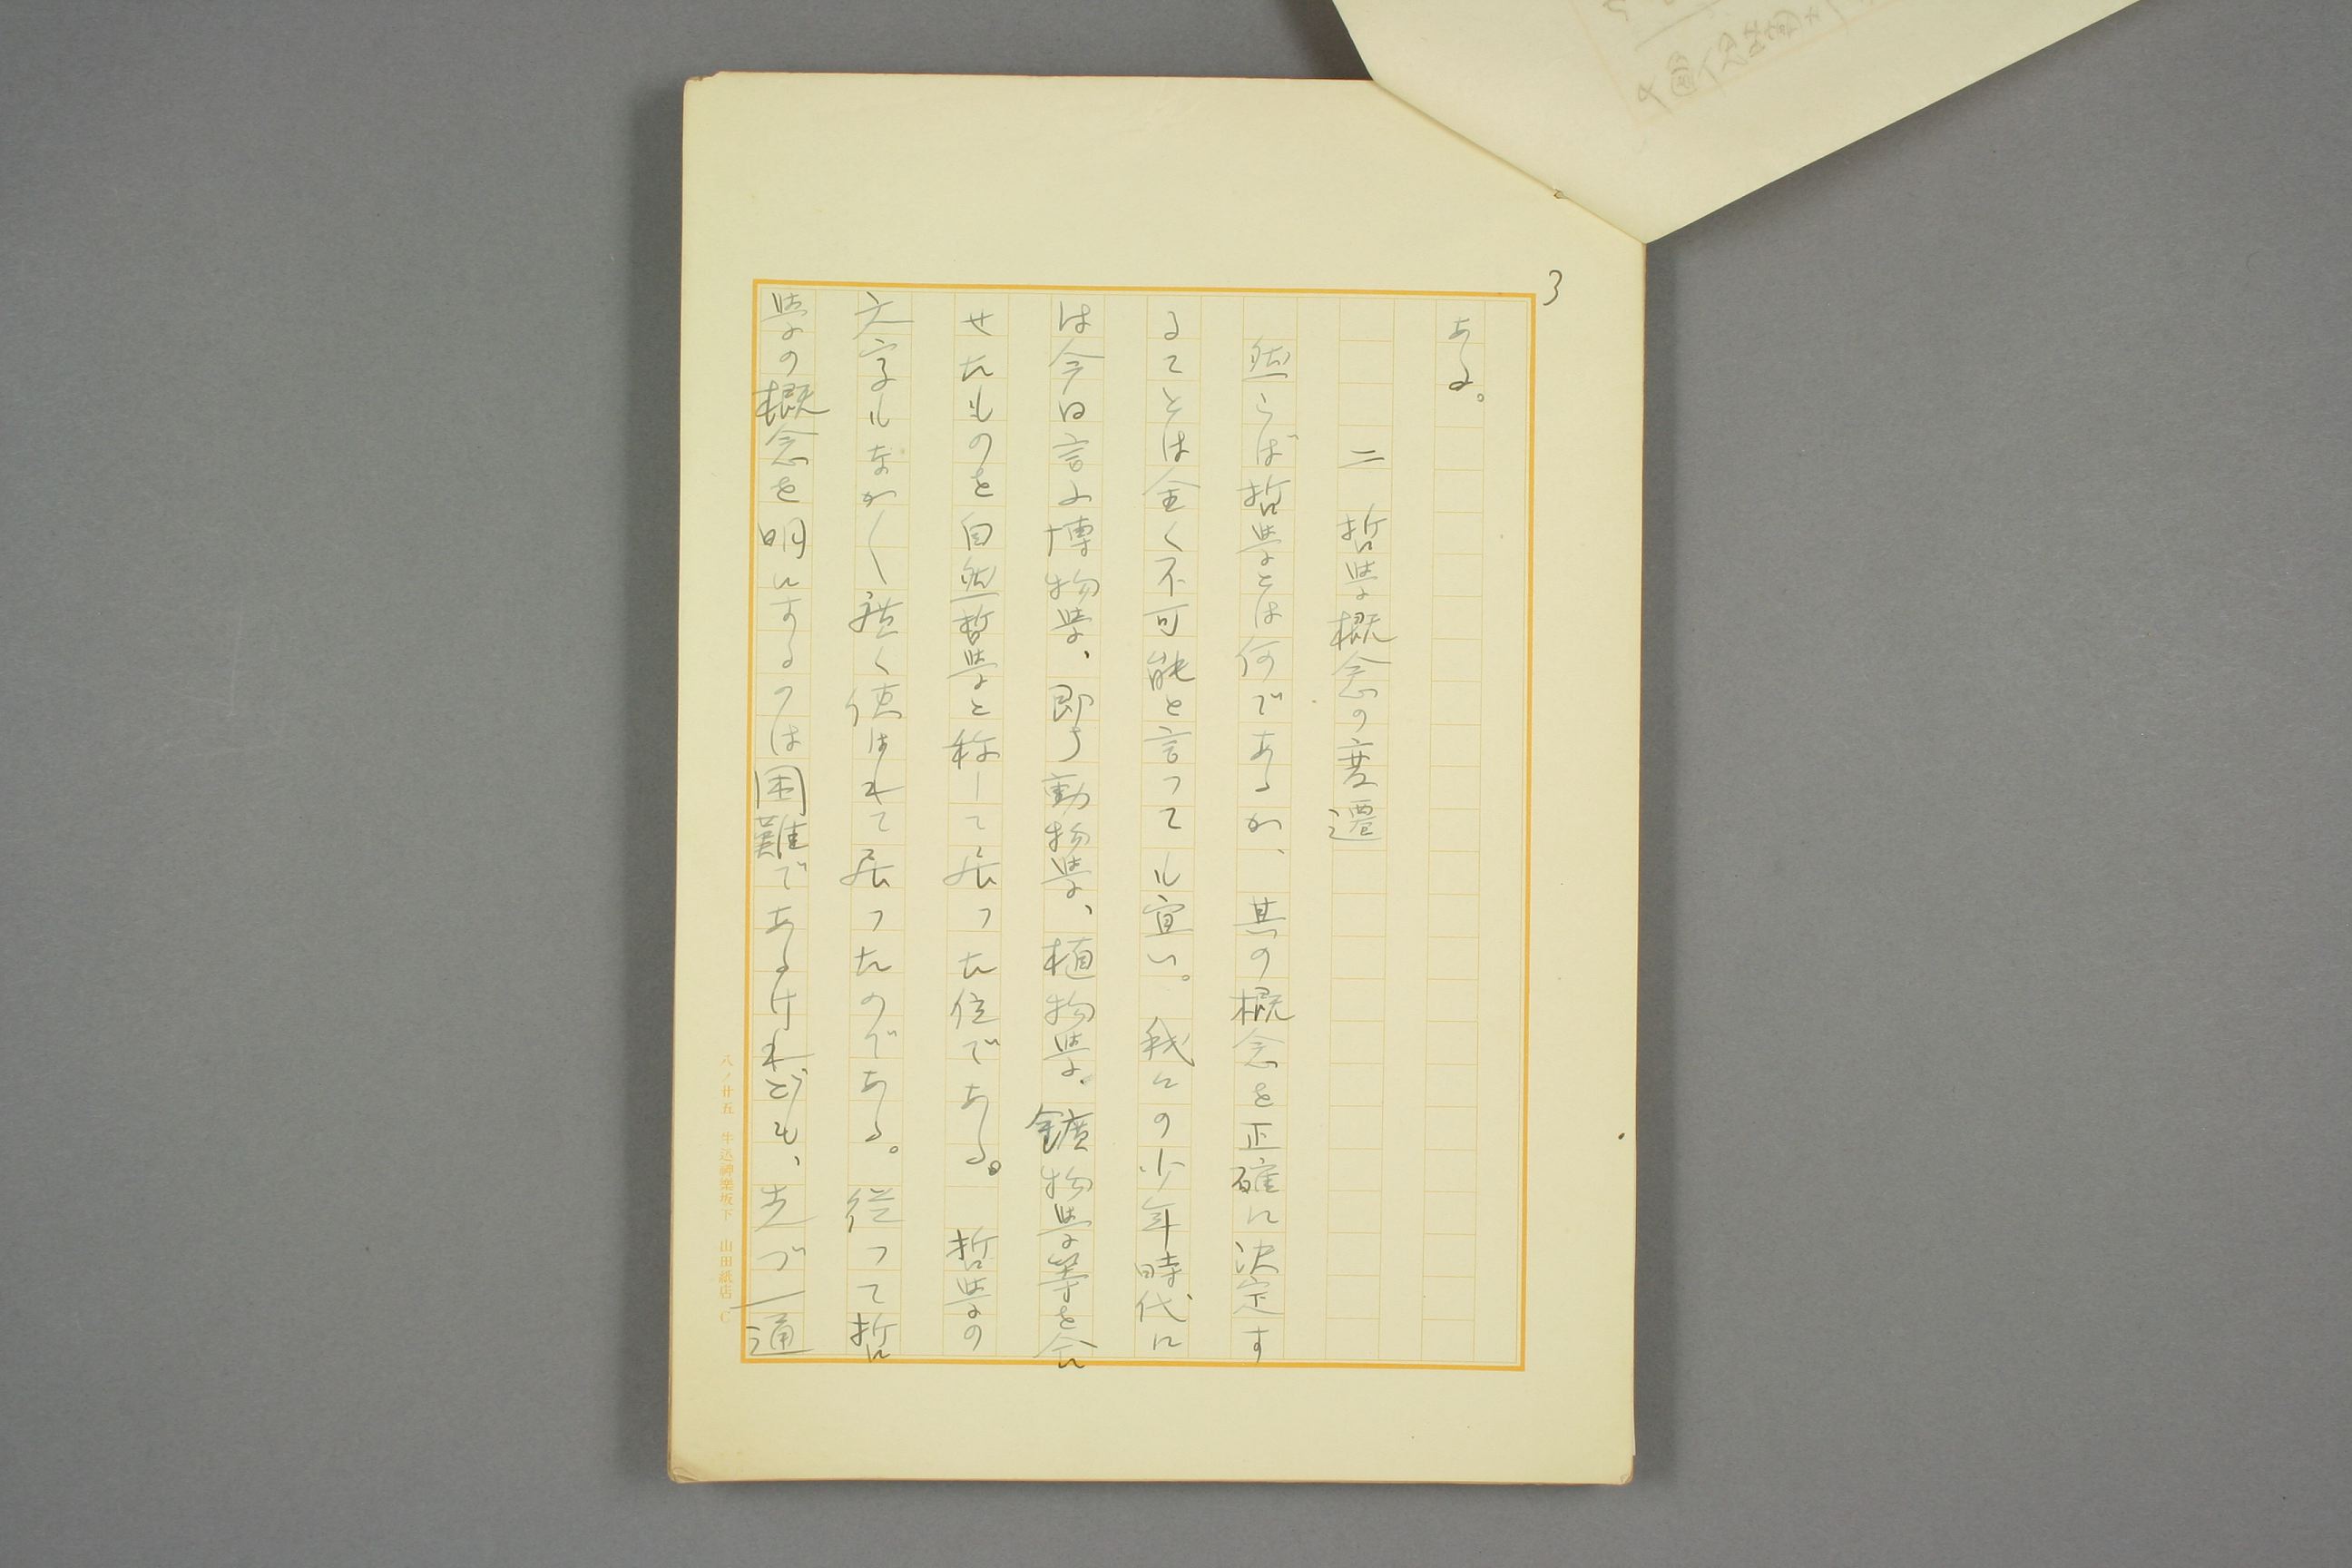 3
ある。
二 哲學概念の変遷
然らば哲學とは何であるか、其の概念を正確に決定す
ることは全く不可能と言つても宜い。我々の少年時代に
は今日言ふ博物學、即ち動物學、植物學、鑛物學等を合
せたものを自然哲學と称して居つた位である。哲學の
文字もなか〳〵廣く使はれて居つたのである。従つて哲
學の概念を明にするのは困難であるけれども、先づ一通
八ノ廿五 牛込神樂坂下 山田紙店 C